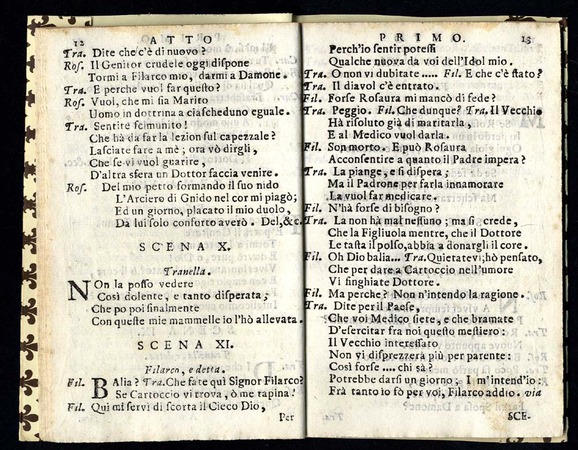 12 ATTO
Tra. Dite che c'è di nuovo?
Ros. Il Genitor crudele oggi dispone
Tormi a Filarco mio, darmi a Damone.
Tra. E perche vuol far questo?
Ros. Vuol, che mi sia Marito
Uomo in dottrina a ciascheduno eguale.
Tra. Sentite scimunito!
Che hà da far la lezion sul capezzale?
Lasciate fare a mè; ora vò dirgli,
Che se vi vuol guarire,
D'altra sfera un Dottor faccia venire.
Ros. Del mio petto formando il suo nido
L'Arciero di Gnido nel cor mi piagò;
Ed un giorno, placato il mio duolo,
Da lui solo conforto averò. Del,&c.
SCENA X.
Tranella.
NOn la posso vedere
Così dolente, e tanto disperata;
Che po poi finalmente
Con queste mie mammelle io l'hò allevata.
SCENA XI.
Filarco, e detta.
Fil. BAlia? Tra. Che fate quì Signor Filarco?
Se Cartoccio vi trova, ò me tapina!
Fil. Quì mi servì di scorta il Cieco Dio,
Per
PRIMO. 13
Perch'io sentir potessi
Qualche nuova da voi dell'Idol mio.
Tra. O non vi dubitate .... Fil. E che c'è stato?
Tra. Il diavol c'è entrato.
Fil. Forse Rosaura mi mancò di fede?
Tra. Peggio. Fil. Che dunque? Tra. Il Vecchio
Hà risoluto già di maritarla,
E al Medico vuol darla.
Fil. Son morto. E può Rosaura
Acconsentire a quanto il Padre impera?
Tra. La piange, e si dispera;
Ma il Padrone per farla innamorare
La vuol far medicare.
Fil. N'hà forse di bisogno?
Tra. La non hà mal nessuno; ma si crede,
Che la Figliuola mentre, che il Dottore
Le tasta il polso, abbia a donargli il core.
Fil. Oh Dio balia... Tra. Quietatevi; hò pensato,
Che per dare a Cartoccio nell'umore
Vi finghiate Dottore.
Fil. Ma perche? Non n'intendo la ragione.
Tra. Dite per il Paese,
Che voi Medico siete, e che bramate
D'esercitar frà noi questo mestiero:
Il Vecchio interessato
Non vi disprezzerà più per parente:
Così forse .... chi sà?
Potrebbe darsi un giorno; I m'intend'io:
Frà tanto io sò per voi, Filarco addio. via
SCE-